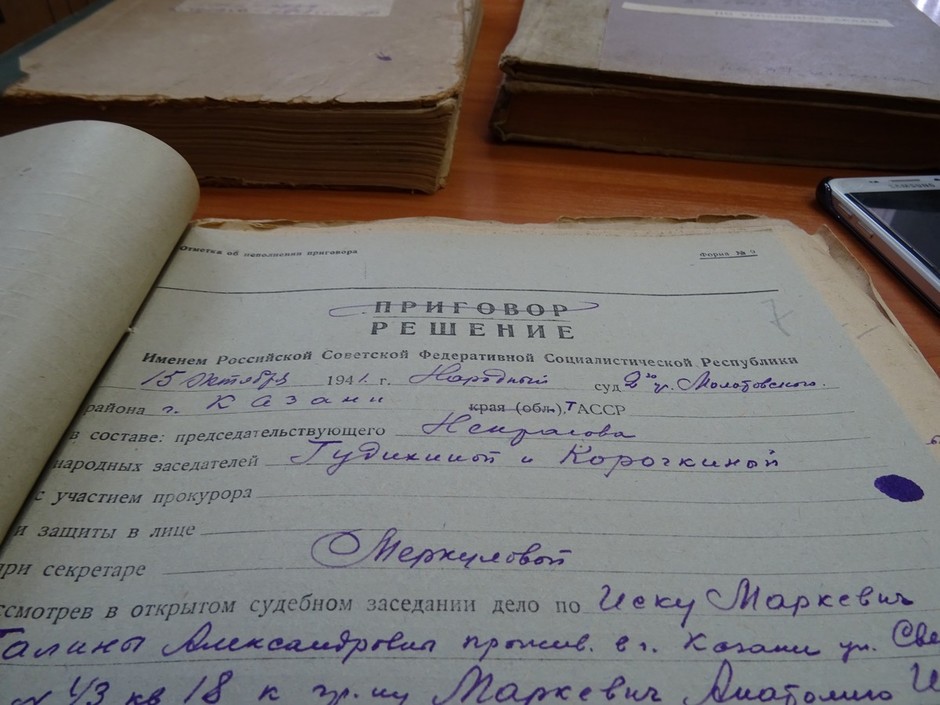 по уголовным делам
SAMSUNG
Отметка об исполнении приговора
Форма № 9
7
ПРИГОВОР
РЕШЕНИЕ
Именем Российской Советской Федеративной Социалистической Республики
15 октября 1941 г. Народный суд 2го у. Молотовского.
района г. Казани края (обл.), ТАССР
в составе: председательствующего Некрасова
народных заседателей Гудихиной и Корочкиной
с участием прокурора
и защиты в лице
при секретаре Меркуловой
ссмотрев в открытом судебном заседании дело по Иску Маркевич
Галины Александровны прожив. в г. Казани ул. Све
№ 43 кв 18 к гр-ну Маркевич Анатолию И